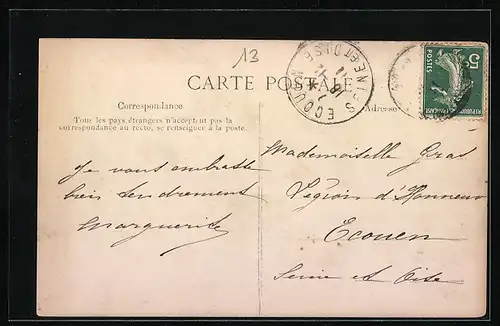 13
CARTE POSTALE
Correspondance
Tous les pays étrangers n'acceptent pas la
correspondance au recto, se renseigner à la poste.
Adresse
5c
POSTES
RÉPUBLIQUE FRANÇAISE
Je vous embrasse
bien tendrement
Marguerite
Mademoiselle Gras
Légion d'Honneur
Ecouen
Seine et Oise